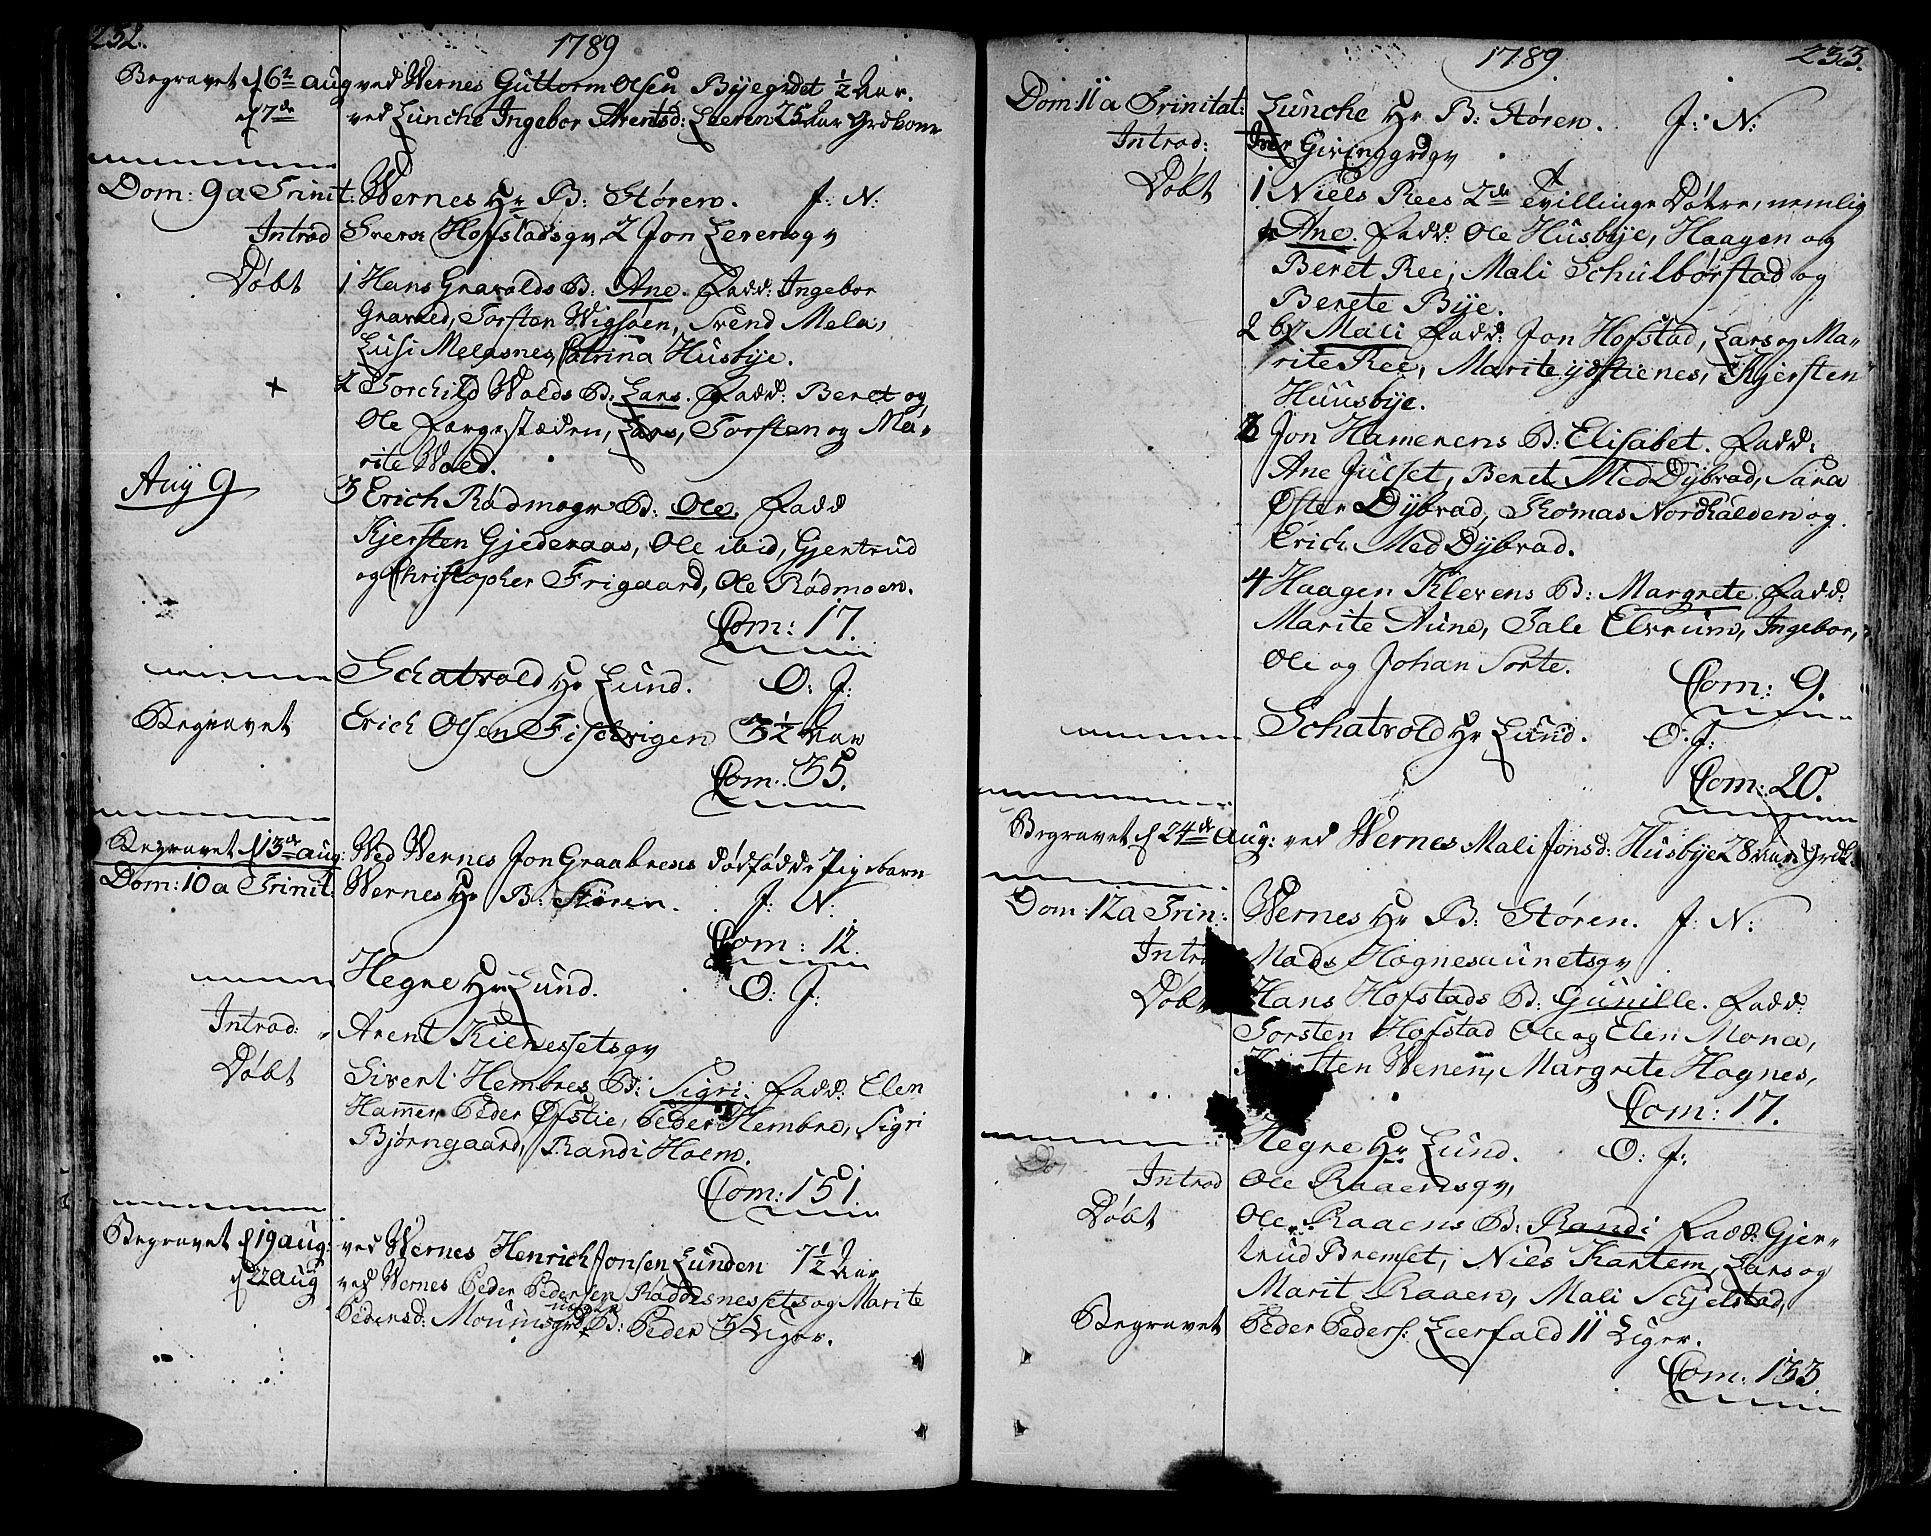 232.
1789
Begravet d 6te aug ved Wernes Guttorm Olsen Byegrdet ½ Aar.
d 7de ved Lunche Ingebor Arentsd: Leeren 25 Aar Grdkone
Dom: 9 a Trinit: Wernes Hr B: Støren. f: N:
Introd Svend Hofstadsgv, 2 Jon Lerensgv
Døbt 1 Hans Gravolds B: Ane. Fadd: Ingebor
Graveed, Torsten Wigsøen, Svend Mela,
Lusi Melasnes, Catrina Husbye.
+ 2 Torchild Wolds B: Lars. Fadd: Beret og
Ole Fargestæden, Lars, Torsten og Ma-
rite Wold.
Aug 9 3 Erich Rødmogv B: Ole. Fadd
Kjersten Gjederaas, Ole ibid, Gjertrud
og Christopher Frigaard, Ole Rødmoen.
Com: 17.
Schatvold Hr Lund. O: f:
Begravet Erich Olsen Fischvigen 3½ Aar
Com: 35.
Begravet d 13de aug: Ved Wernes Jon Graabrecks dødfødde Pigebarn
Dom: 10 a Trinit. Wernes Hr B: Støren. f: N:
Com: 12.
Hegre Hr Lund. O: f:
Introd: Arent Kienessetsgv
Døbt Sivert Hembres B: Sigri. Fadd: Elen
Hamer, Peder Øfstie, Peder Hembre, Sigri
Bjørngaard, Randi Hoem.
Com: 151.
Begravet d 19 aug: ved Wernes Henrich Jonsen Lunden 7½ Aar
d 22 aug ved Wernes Peder Pedersen Røddesnessets og Marite
Pedersd: Mouumsgrd B: Peder 3 Uger.
1789
233.
Dom: 11 a Trinitat: Lunche Hr B: Støren. f: N:
Introd: Iver Givinggrdgv
Døbt 1 Niels Rees 2de Tvillinge Døtre, nemlig
a Ane. Fadd: Ole Husbye, Haagen og
Beret Ree, Mali Schulbørstad og
Berete Bye.
2 b Mali Fadd: Jon Hofstad, Lars og Ma-
rite Ree, Marite ydstienes, Kjersten
Huusbye.
3 Jon Hamerens B: Elisabet. Fadd:
Ane Julset, Beret MedDybvad, Sara
Øster Dybvad, Thomas Nordhalden og
Erich MedDybvad.
4 Haagen Klevens B: Margrete. Fadd:
Marite Aune, Tale Elvrum, Ingebor,
Ole og Johan Sorte.
Com: 9.
Schatvold Hr Lund. O: f:
Com: 20.
Begravet d 24de Aug: ved Wernes Mali Jonsd: Husbye 28 Aar Grdk:
Dom: 12 a Trin: Wernes Hr B: Støren. f: N:
Introd Mads Hognesaunetsgv
Døbt Hans Hofstads B: Gunille. Fadd:
Torsten Hofstad Ole og Elen Mona,
Kjersten Wenen, Margrete Hognes,
Com: 17.
Hegre Hr Lund. O: f:
Introd Ole Raaensgv,
Døbt Ole Raaens B: Randi Fadd: Gjer-
trud Bremset, Niels Kartem, Lars og
Marit Raaen, Mali Schjelstad,
Begravet Peder Peders: Leerfald 11 Uger.
Com: 133.